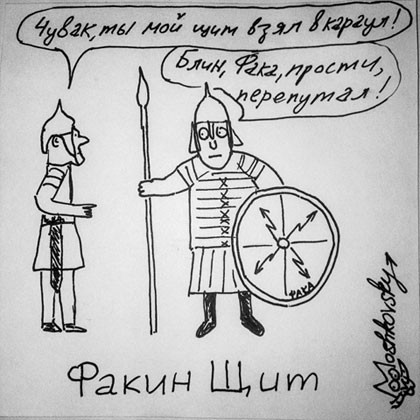 Чувак, ты мой щит взял в караул!
Блин, Фака, прости,
перепутал!
ФАКА
Moshkovsky
Факин Щит